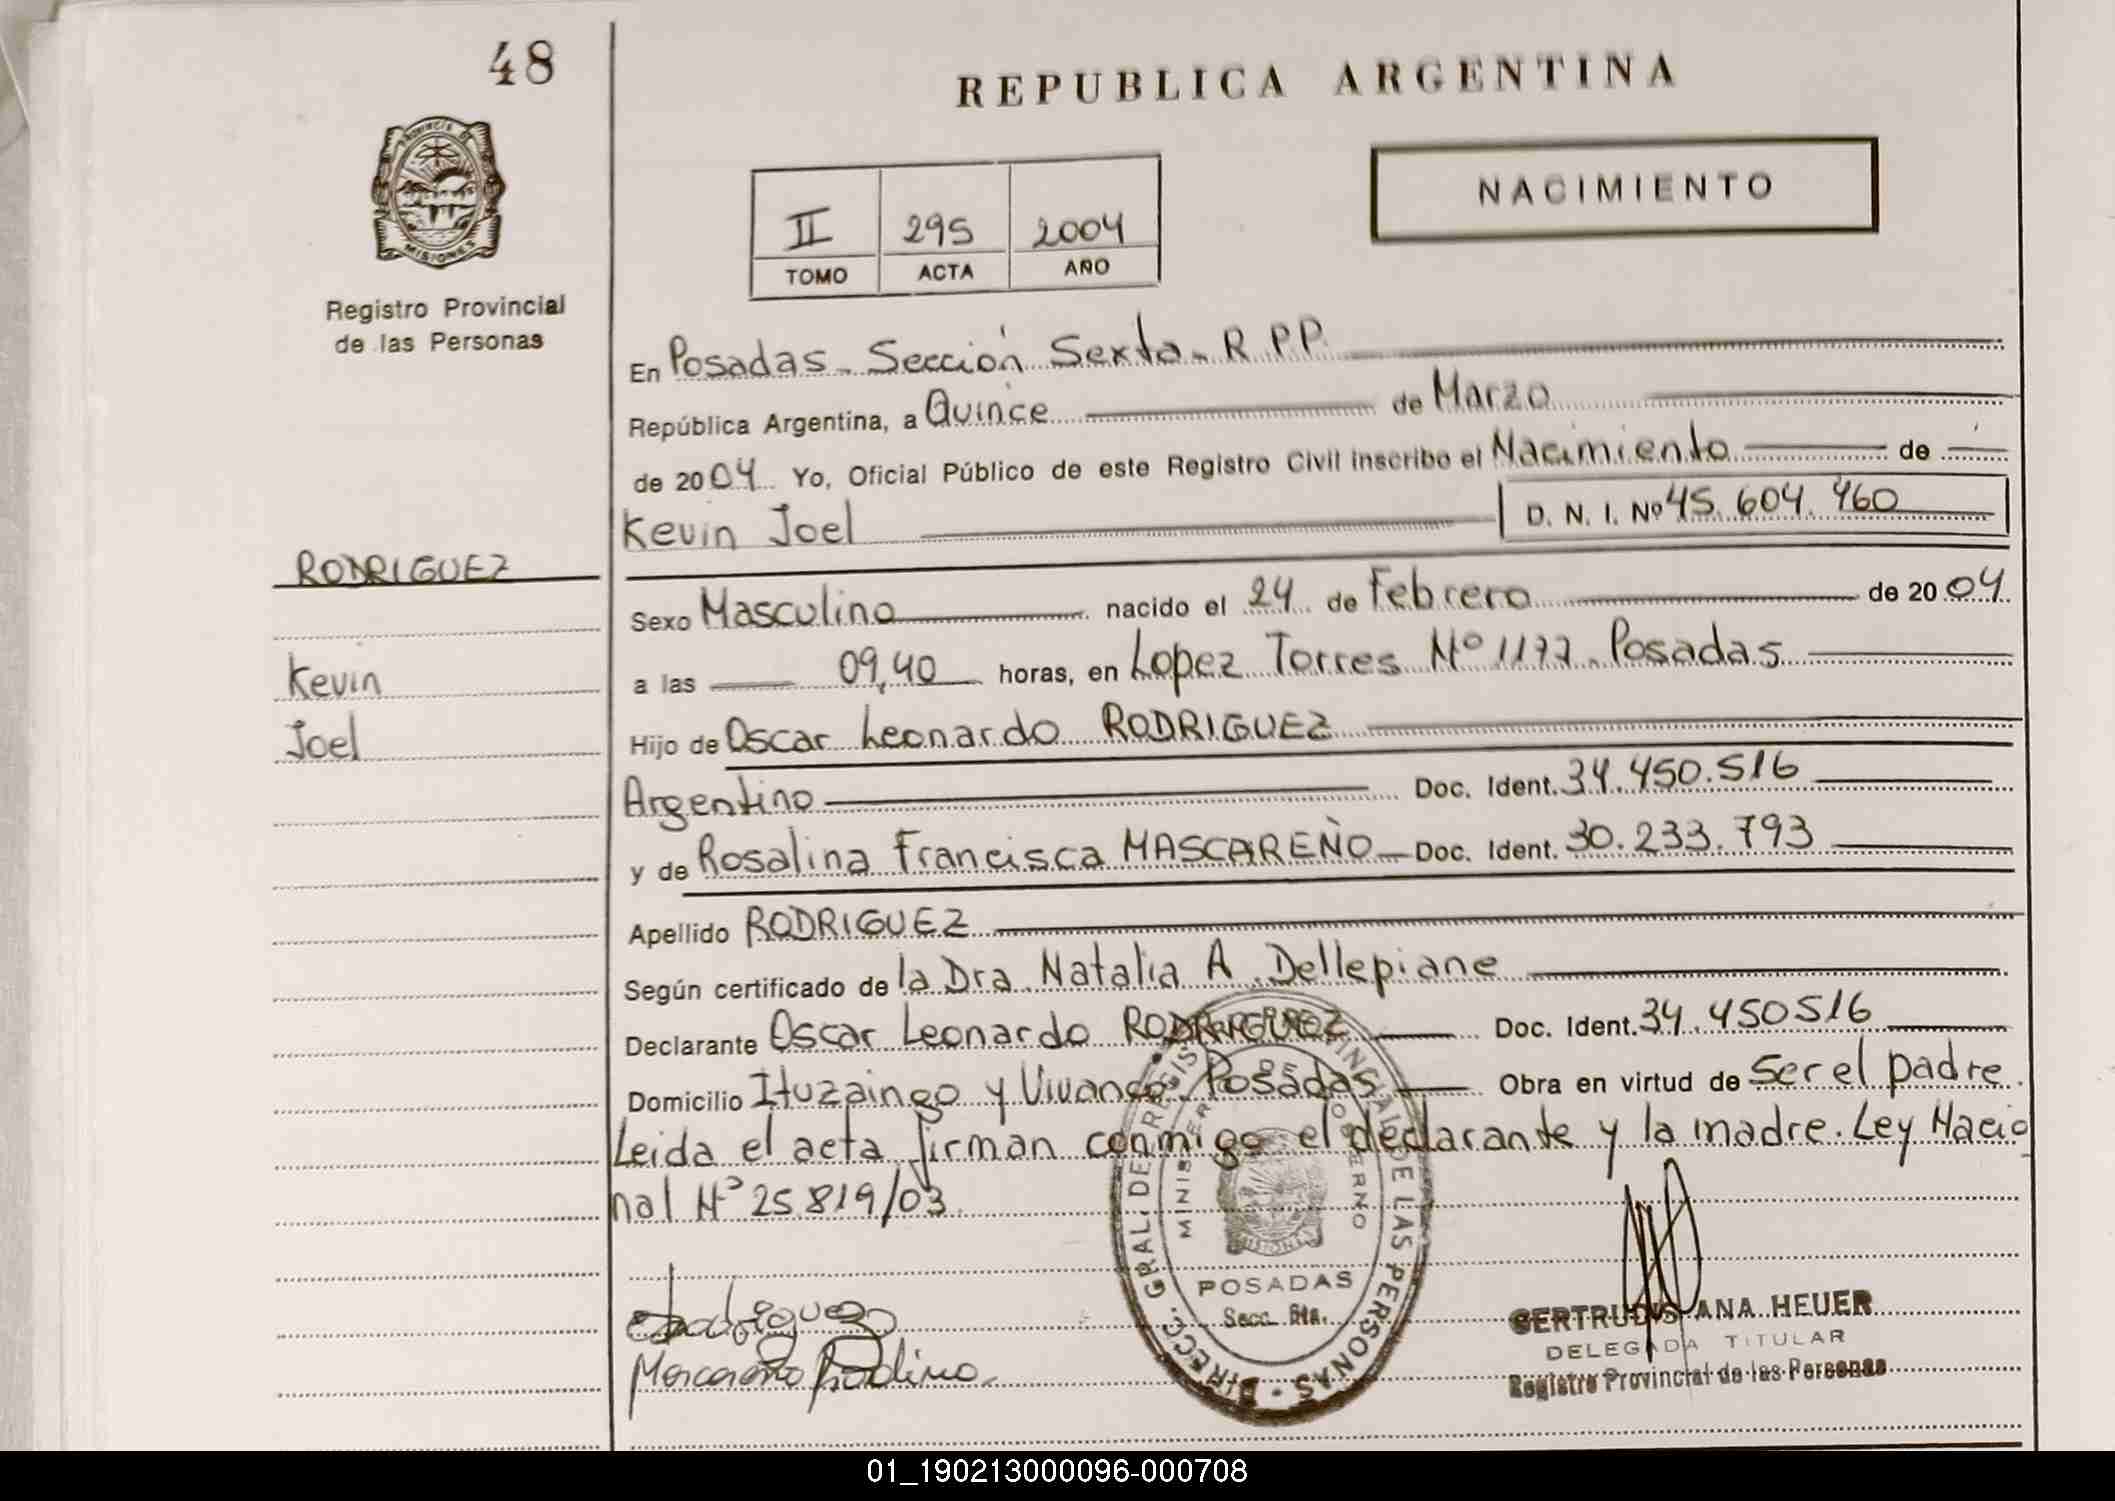 48
PROVINCIA DE
MISIONES
Registro Provincial
de las Personas
RODRIGUEZ
Kevin
Joel
REPUBLICA ARGENTINA
NACIMIENTO
II 295 2004
TOMO ACTA AÑO
En Posadas - Sección Sexta - R.P.P.
República Argentina, a Quince de Marzo
de 2004 Yo, Oficial Público de este Registro Civil inscribo el Nacimiento de
Kevin Joel D. N. I. Nº 45.604.460
Sexo Masculino nacido el 24 de Febrero de 2004.
a las 09,40 horas, en Lopez Torres Nº 1177. Posadas
Hijo de Oscar Leonardo RODRIGUEZ
Argentino Doc. Ident. 34.450.516
y de Rosalina Francisca MASCAREÑO Doc. Ident. 30.233.793
Apellido RODRIGUEZ
Según certificado de la Dra. Natalia A. Dellepiane
Declarante Oscar Leonardo RODRIGUEZ Doc. Ident. 34.450516
Domicilio Ituzaingo y Vivanco. Posadas Obra en virtud de Ser el padre.
Leida el acta firman conmigo el declarante y la madre. Ley Nacio
nal Nº 25.819/03.
DIRECC. GRAL. DE REGIS PROVINCIAL DE LAS PERSONAS
MINISTERIO DE GOBIERNO
MISIONES
POSADAS
Secc. 6ta.
Rodriguez
Mascareño Rosalina.
GERTRUDIS ANA HEUER
DELEGADA TITULAR
Registro Provincial de las Personas
01_190213000096-000708